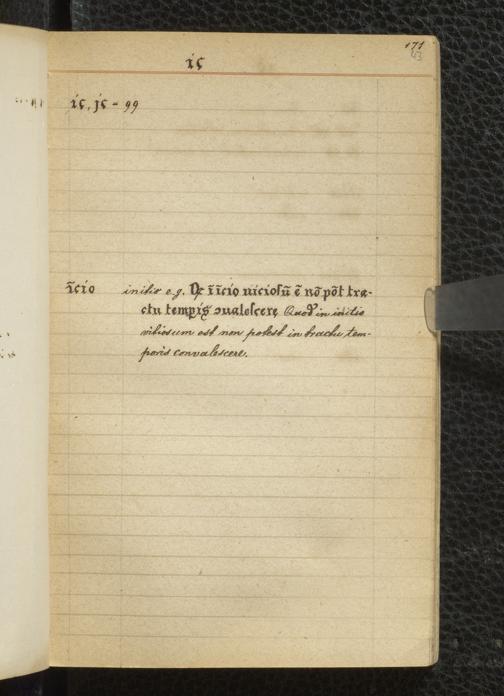 171
43
ic
ic, jc - 99
īcio initio e.g. Qꝫ ī īcio uiciosū ē nō pōt tra-
ctu tempis ꝯualescere Quod in initio
vitiosum est non potest in tractu tem-
poris convalescere.